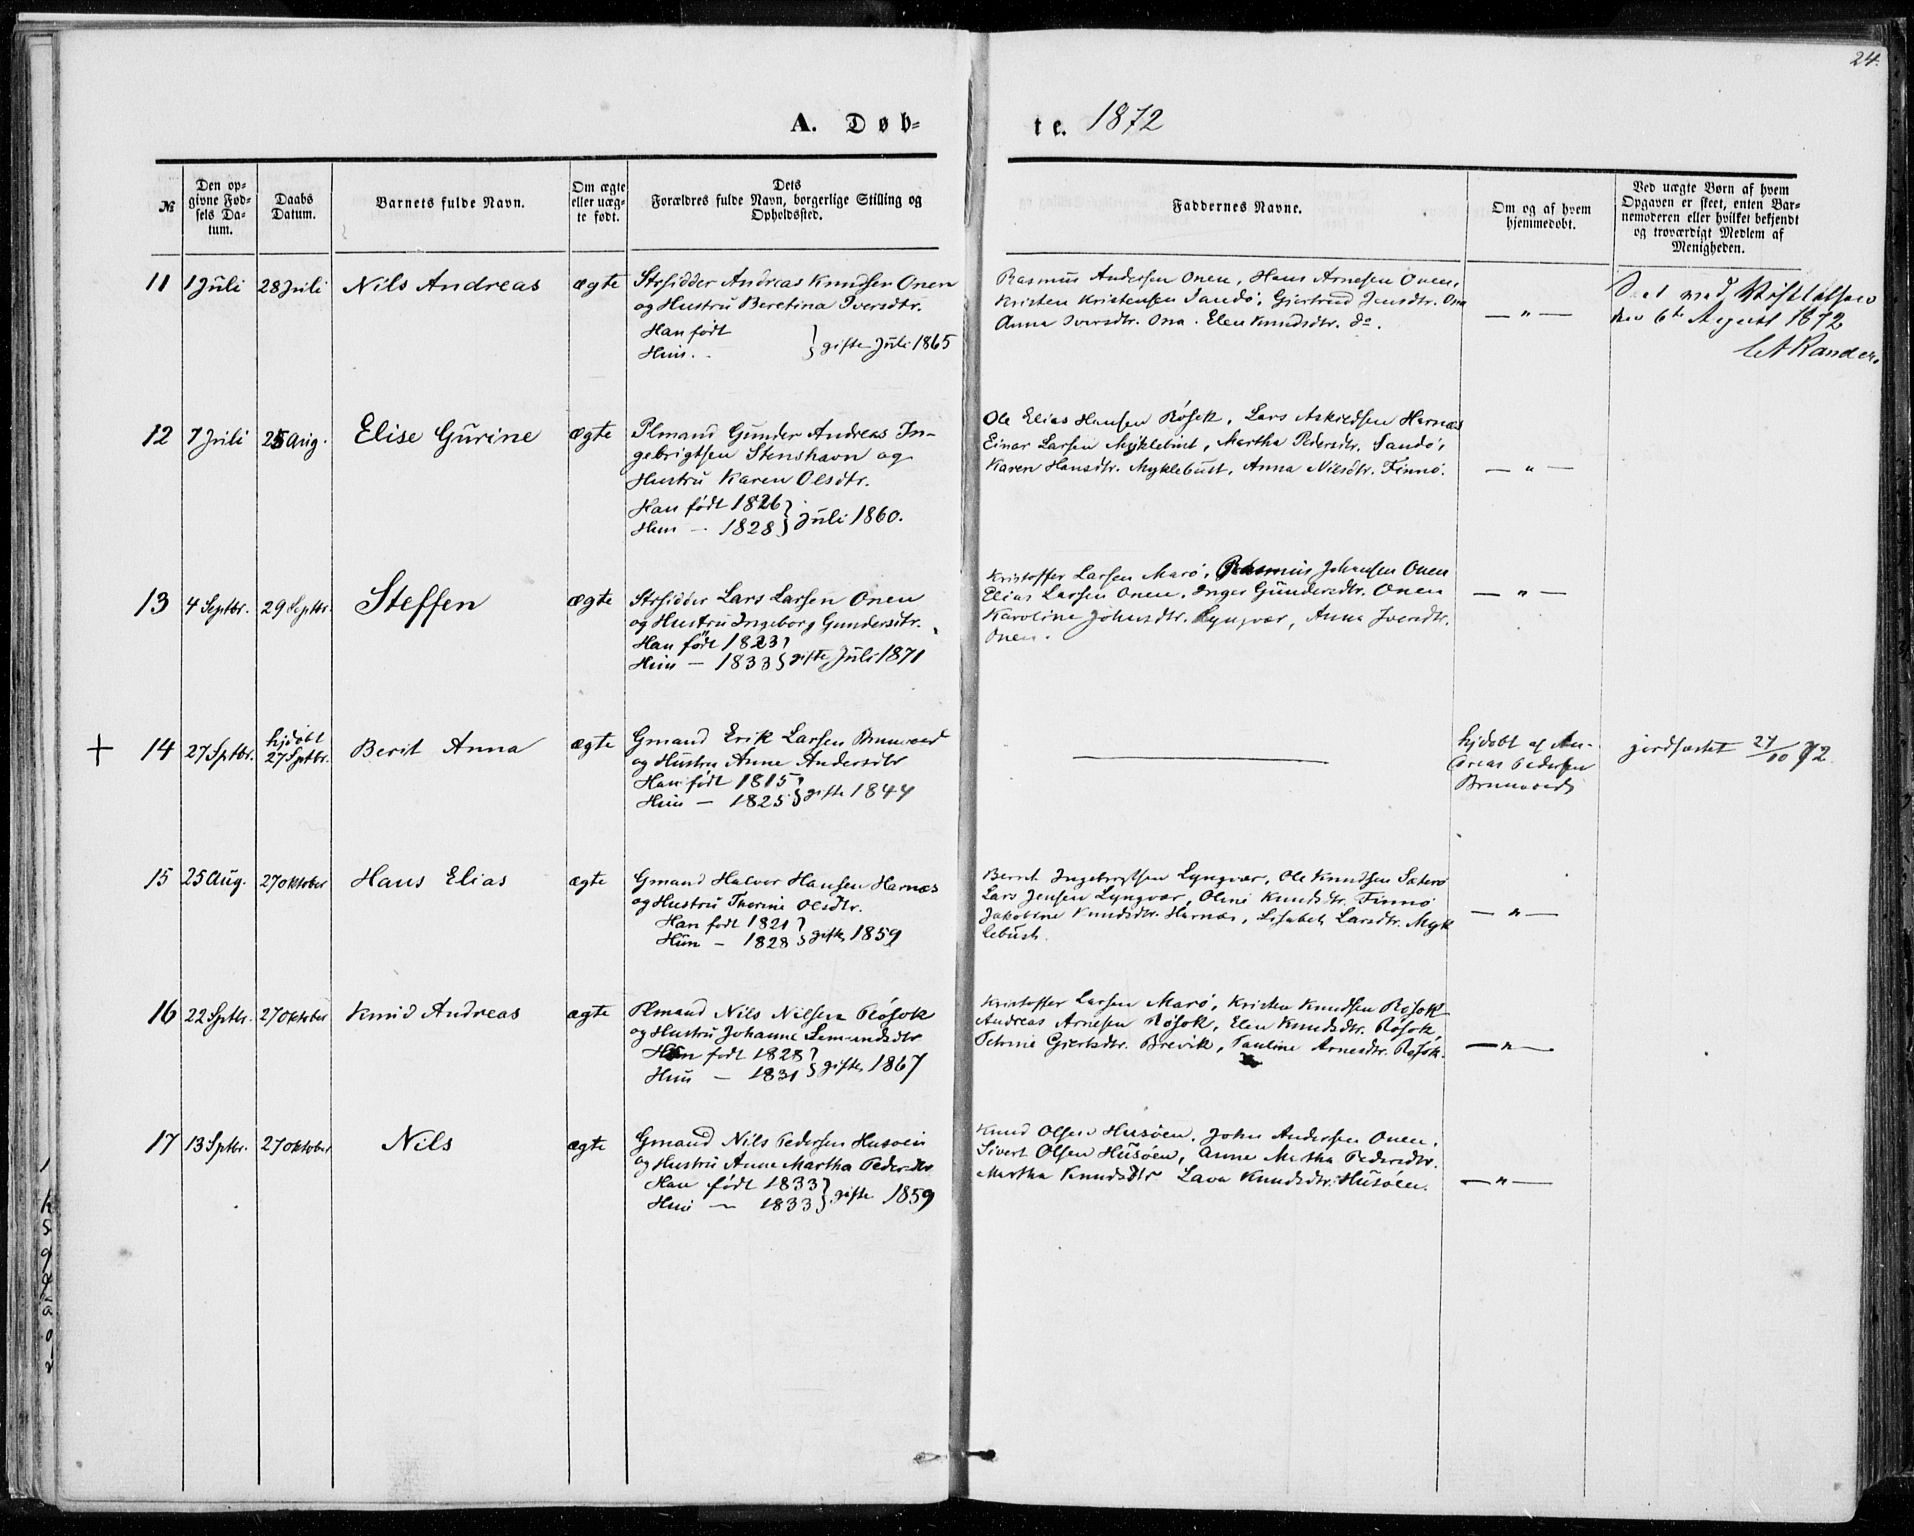 24.
A. Døb=
te. 1872
№
Den op=
givne Fød=
sels Da=
tum.
Daabs
Datum.
Barnets fulde Navn.
Om ægte
eller uæg=
te født.
Dets
Forældres fulde Navn, borgerlige Stilling og
Opholdssted.
Faddernes Navne.
Om og af hvem
hjemmedøbt.
Ved uægte Børn af hvem
Opgaven er skeet, enten Bar=
nemoderen eller hvilket bekjendt
og troværdigt Medlem af
Menigheden.
11 1 Juli 28 Juli Nils Andreas ægte
Strsidder Andreas Knudsen Onen
og Hustru Beretina Iversdtr.
Han født
Hun .. } gifte Juli 1865
Rasmus Andersen Onen, Hans Arnesen Onen,
Kristen Kristensen Sandø, Gjertrud Jensdtr. Ona
Anna Iversdtr. Ona. Elen Knudsdtr. do.
— " —
den 6te August 1872
12 7 Juli 25 Aug. Elise Gurine ægte
Plmand Gunder Andreas In-
gebrigtsen Stenshavn og
Hustru Karen Olsdtr.
Han født 1826
Hun — 1828 } Juli 1860.
Ole Elias Hansen Røsok, Lars Askildsen Harnæs
Einar Larsen Myklebust, Martha Pedersdtr. Sandø,
Karen Hansdtr. Myklebust, Anna Nilsdtr. Finnø.
— " —
13 4 Septbr. 29 Septbr. Steffen ægte
Strsidder Lars Larsen Onen
og Hustru Ingeborg Gundersdtr.
Han født 1823
Hun — 1833 } gifte Juli 1871
Kristoffer Larsen Marø, Rasmus Johansen Onen
Elias Larsen Onen, Inger Gundersdtr. Onen
Karoline Johnsdtr. Lyngvær, Anna Iversdtr.
Onen.
— " —
+ 14 27 Sptbr. hjdøbt
27 Sptbr. Berit Anna ægte
Gmand Erik Larsen Brunvoed
og Hustru Anne Andersdtr
Han født 1815
Hun — 1825 } gifte 1844
hjdøbt af An-
dreas Pedersen
Brunvoed
jordfæstet 27/10 72.
15 25 Aug. 27 Oktober Hans Elias ægte
Gmand Halvor Hansen Harnæs
og Hustru Thorine Olsdtr.
Han født 1821
Hun — 1828 } gifte 1859
Bernt Ingebrigtsen Lyngvær, Ole Knudsen Sæterø
Lars Jensen Lyngvær, Oline Knudsdtr. Finnø
Jakobine Knudsdtr. Harnæs, Lisabeth Larsdtr. Myk
lebust.
— " —
16 22 Sptbr. 27 Oktober Knud Andreas ægte
Plmand Nils Nilsen Røsok
og Hustru Johanne Semundsdtr
Han født 1828
Hun — 1831 } gifte 1867
Kristoffer Larsen Marø, Kristen Knudsen Røsok
Andreas Arnesen Røsok, Elen Knudsdtr. Røsok
Petrine Gjertsdtr. Brevik, Pauline Arnesdtr. Røsok.
— " —
17 13 Sptbr. 27 Oktober Nils ægte
Gmand Nils Pedersen Husøen
og Hustru Anne Martha Pedersdtr
Han født 1833
Hun — 1833 } gifte 1859
Knud Olsen Husøen. John Andersen Onen.
Sivert Olsen Husøen, Anne Martha Pedersdtr.
Martha Knudsdtr Lava Knudsdtr. Husøen.
— " —